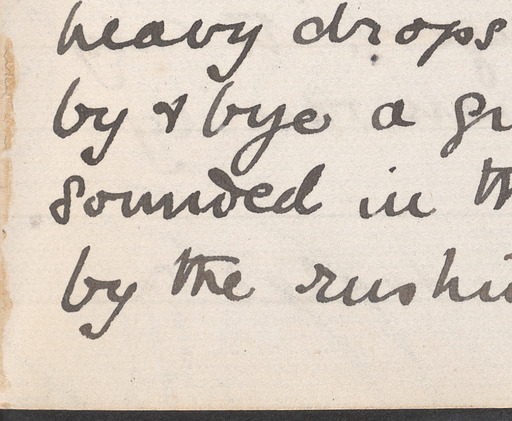 heavy drops
by & bye a gr
sounded in th
by the rushi